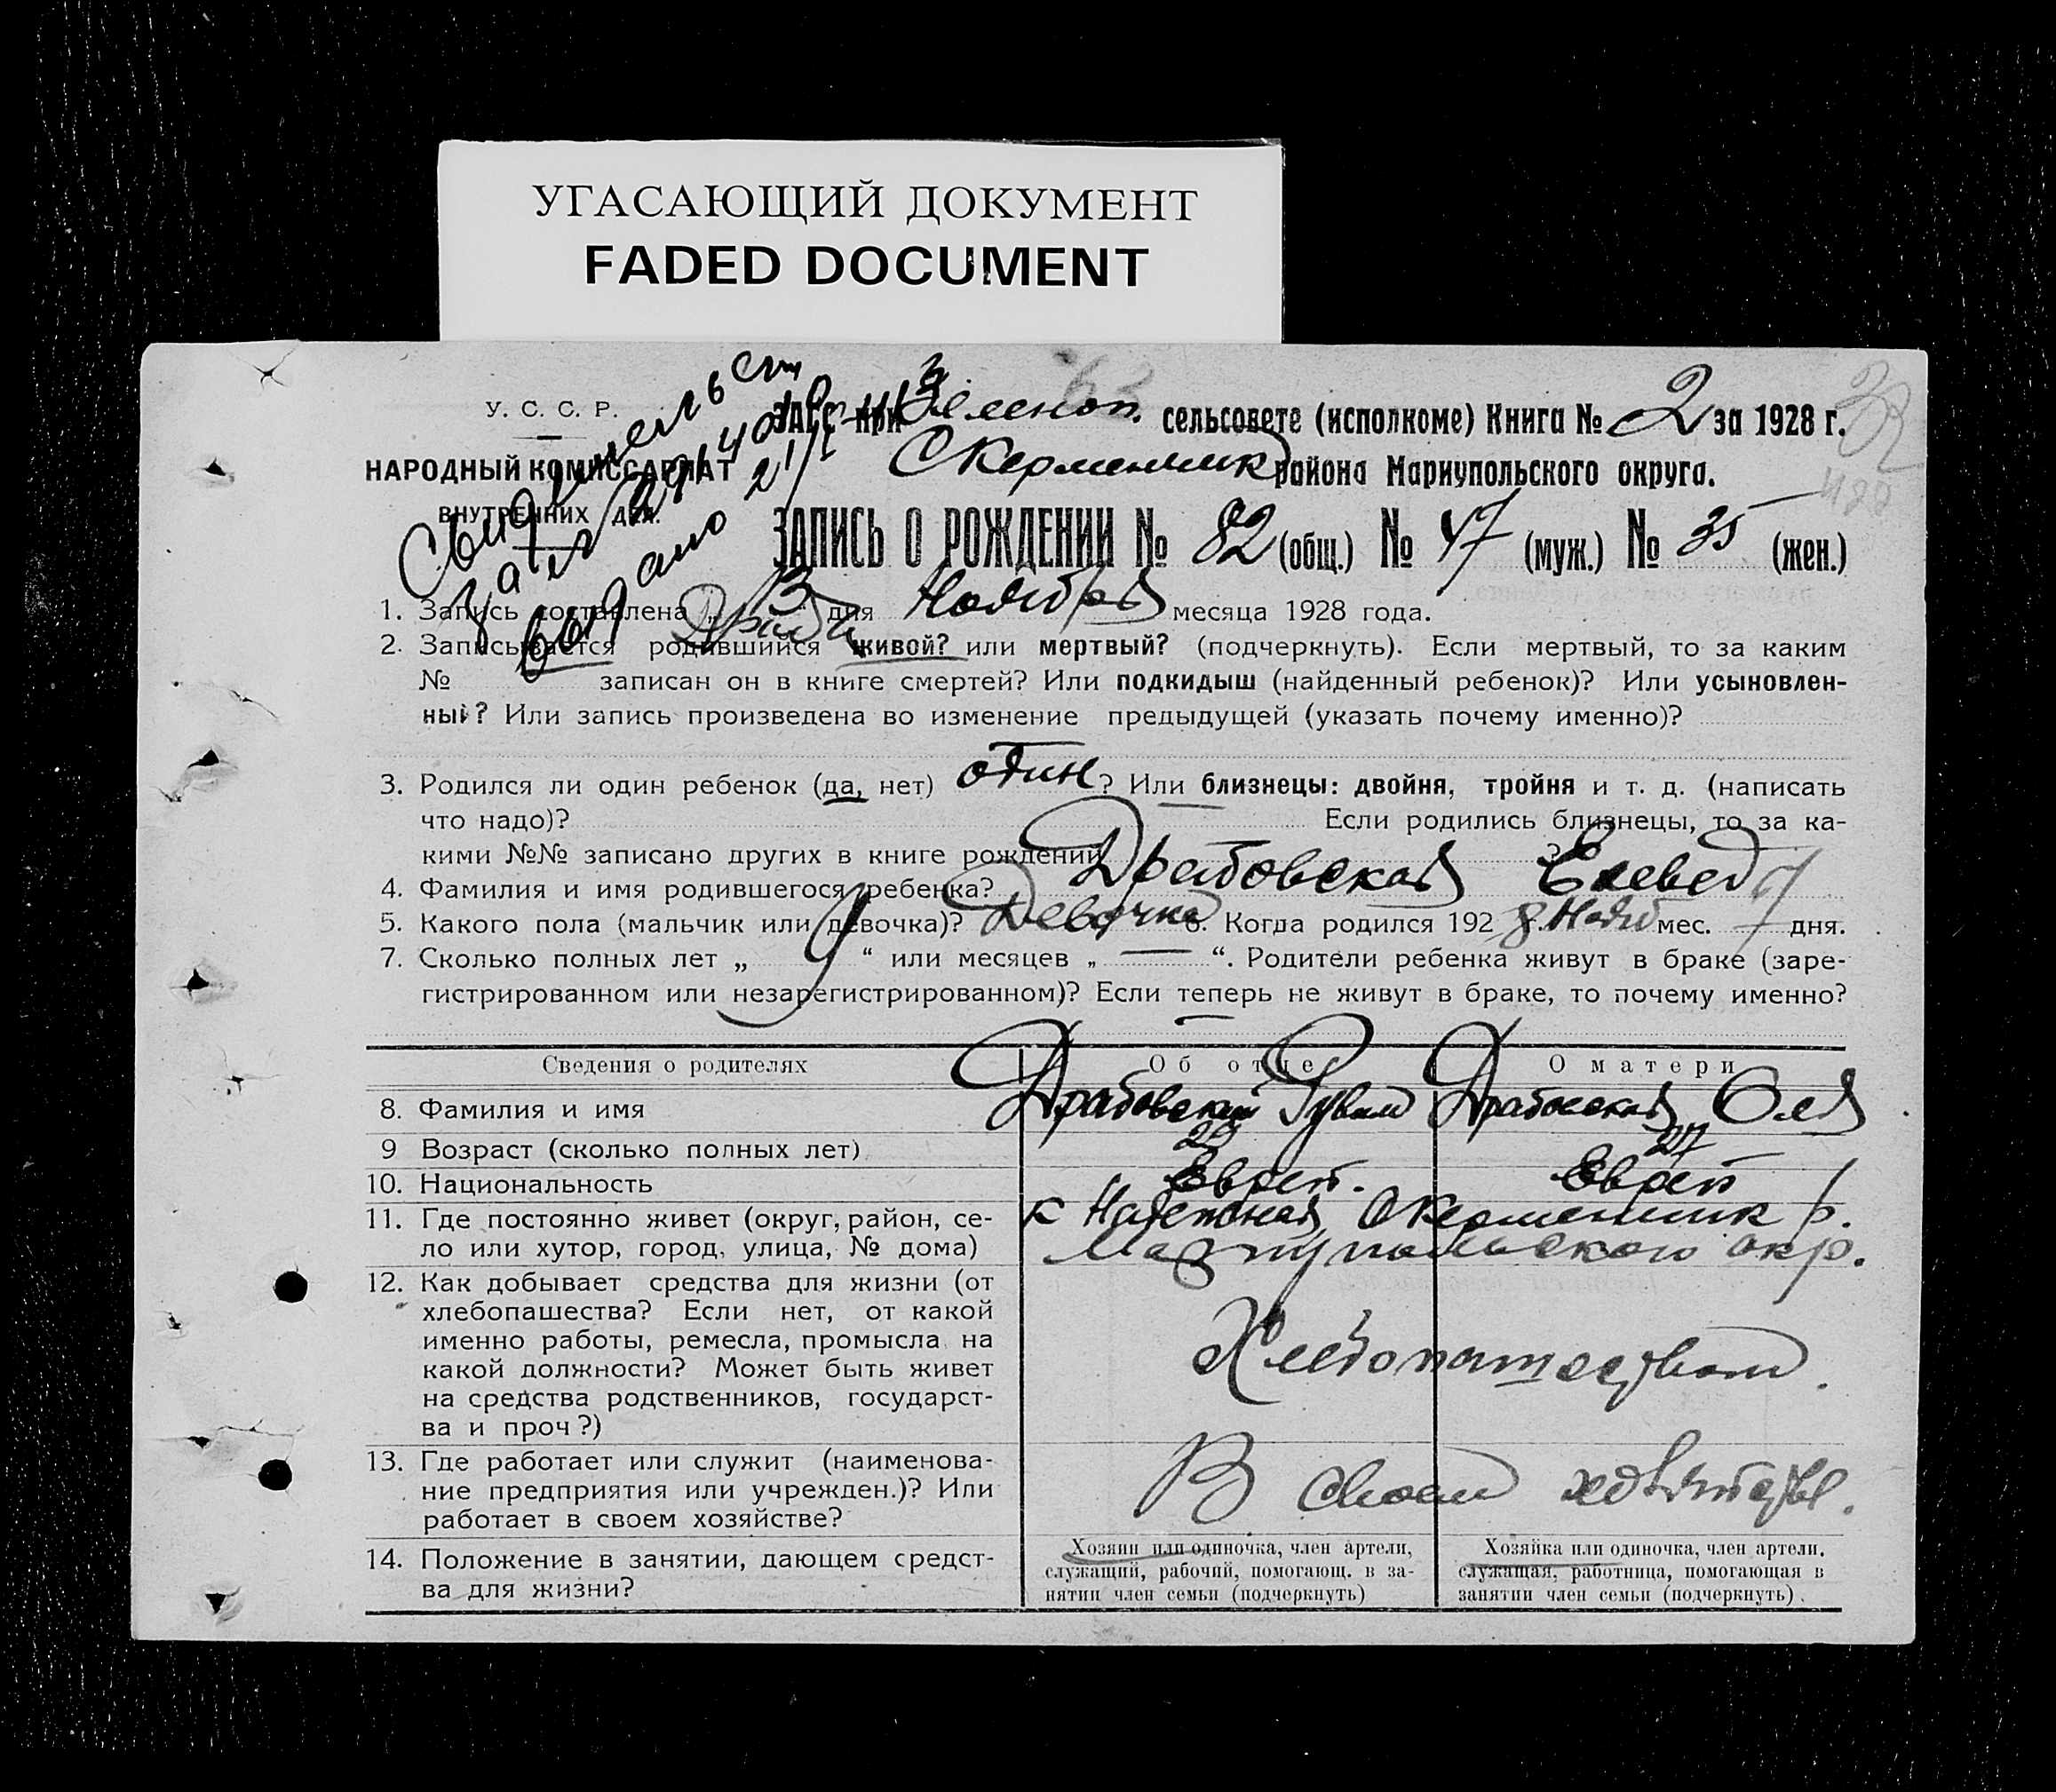 УГАСАЮЩИЙ ДОКУМЕНТ
FADED DOCUMENT
У. С. С. Р.
НАРОДНЫЙ КОМИССАРИАТ
ВНУТРЕННИХ ДЕЛ.
ЗАГС при Зеленоп. сельсовете (исполкоме) Книга № 2 за 1928 г.
района Мариупольского округа.
ЗАПИСЬ О РОЖДЕНИИ № 82 (общ.) № 47 (муж.) № 35 (жен.)
выдано
1. Запись составлена „ 13 дня Ноября месяца 1928 года.
2. Записывается родившийся живой? или мертвый? (подчеркнуть). Если мертвый, то за каким
№ записан он в книге смертей? Или подкидыш (найденный ребенок)? Или усыновлен-
ный? Или запись произведена во изменение предыдущей (указать почему именно)?
3. Родился ли один ребенок (да, нет) один ? Или близнецы: двойня, тройня и т. д. (написать
что надо)? Если родились близнецы, то за ка-
кими №№ записано других в книге рождений ?
4. Фамилия и имя родившегося ребенка? Драбовская
5. Какого пола (мальчик или девочка)? Девочка 6. Когда родился 192 8 г. Нояб мес. 7 дня.
7. Сколько полных лет „ “ или месяцев „ — “. Родители ребенка живут в браке (заре-
гистрированном или незарегистрированном)? Если теперь не живут в браке, то почему именно?
Сведения о родителях Об отце О матери
8. Фамилия и имя Драбовский Рувим Драбовская Оля
9 Возраст (сколько полных лет) 29 27
10. Национальность Еврей. Еврей
11. Где постоянно живет (округ, район, се- к Надежная,
ло или хутор, город, улица, № дома) Мариупольского окр.
12. Как добывает средства для жизни (от
хлебопашества? Если нет, от какой
именно работы, ремесла, промысла на
какой должности? Может быть живет
на средства родственников, государст-
ва и проч?)
Хлебопашеством.
13. Где работает или служит (наименова-
ние предприятия или учрежден.)? Или
работает в своем хозяйстве?
В своем хозяйстве.
14. Положение в занятии, дающем средст-
ва для жизни?
Хозяин или одиночка, член артели,
служащий, рабочий, помогающ. в за-
нятии член семьи (подчеркнуть)
Хозяйка или одиночка, член артели,
служащая, работница, помогающая в
занятии член семьи (подчеркнуть).